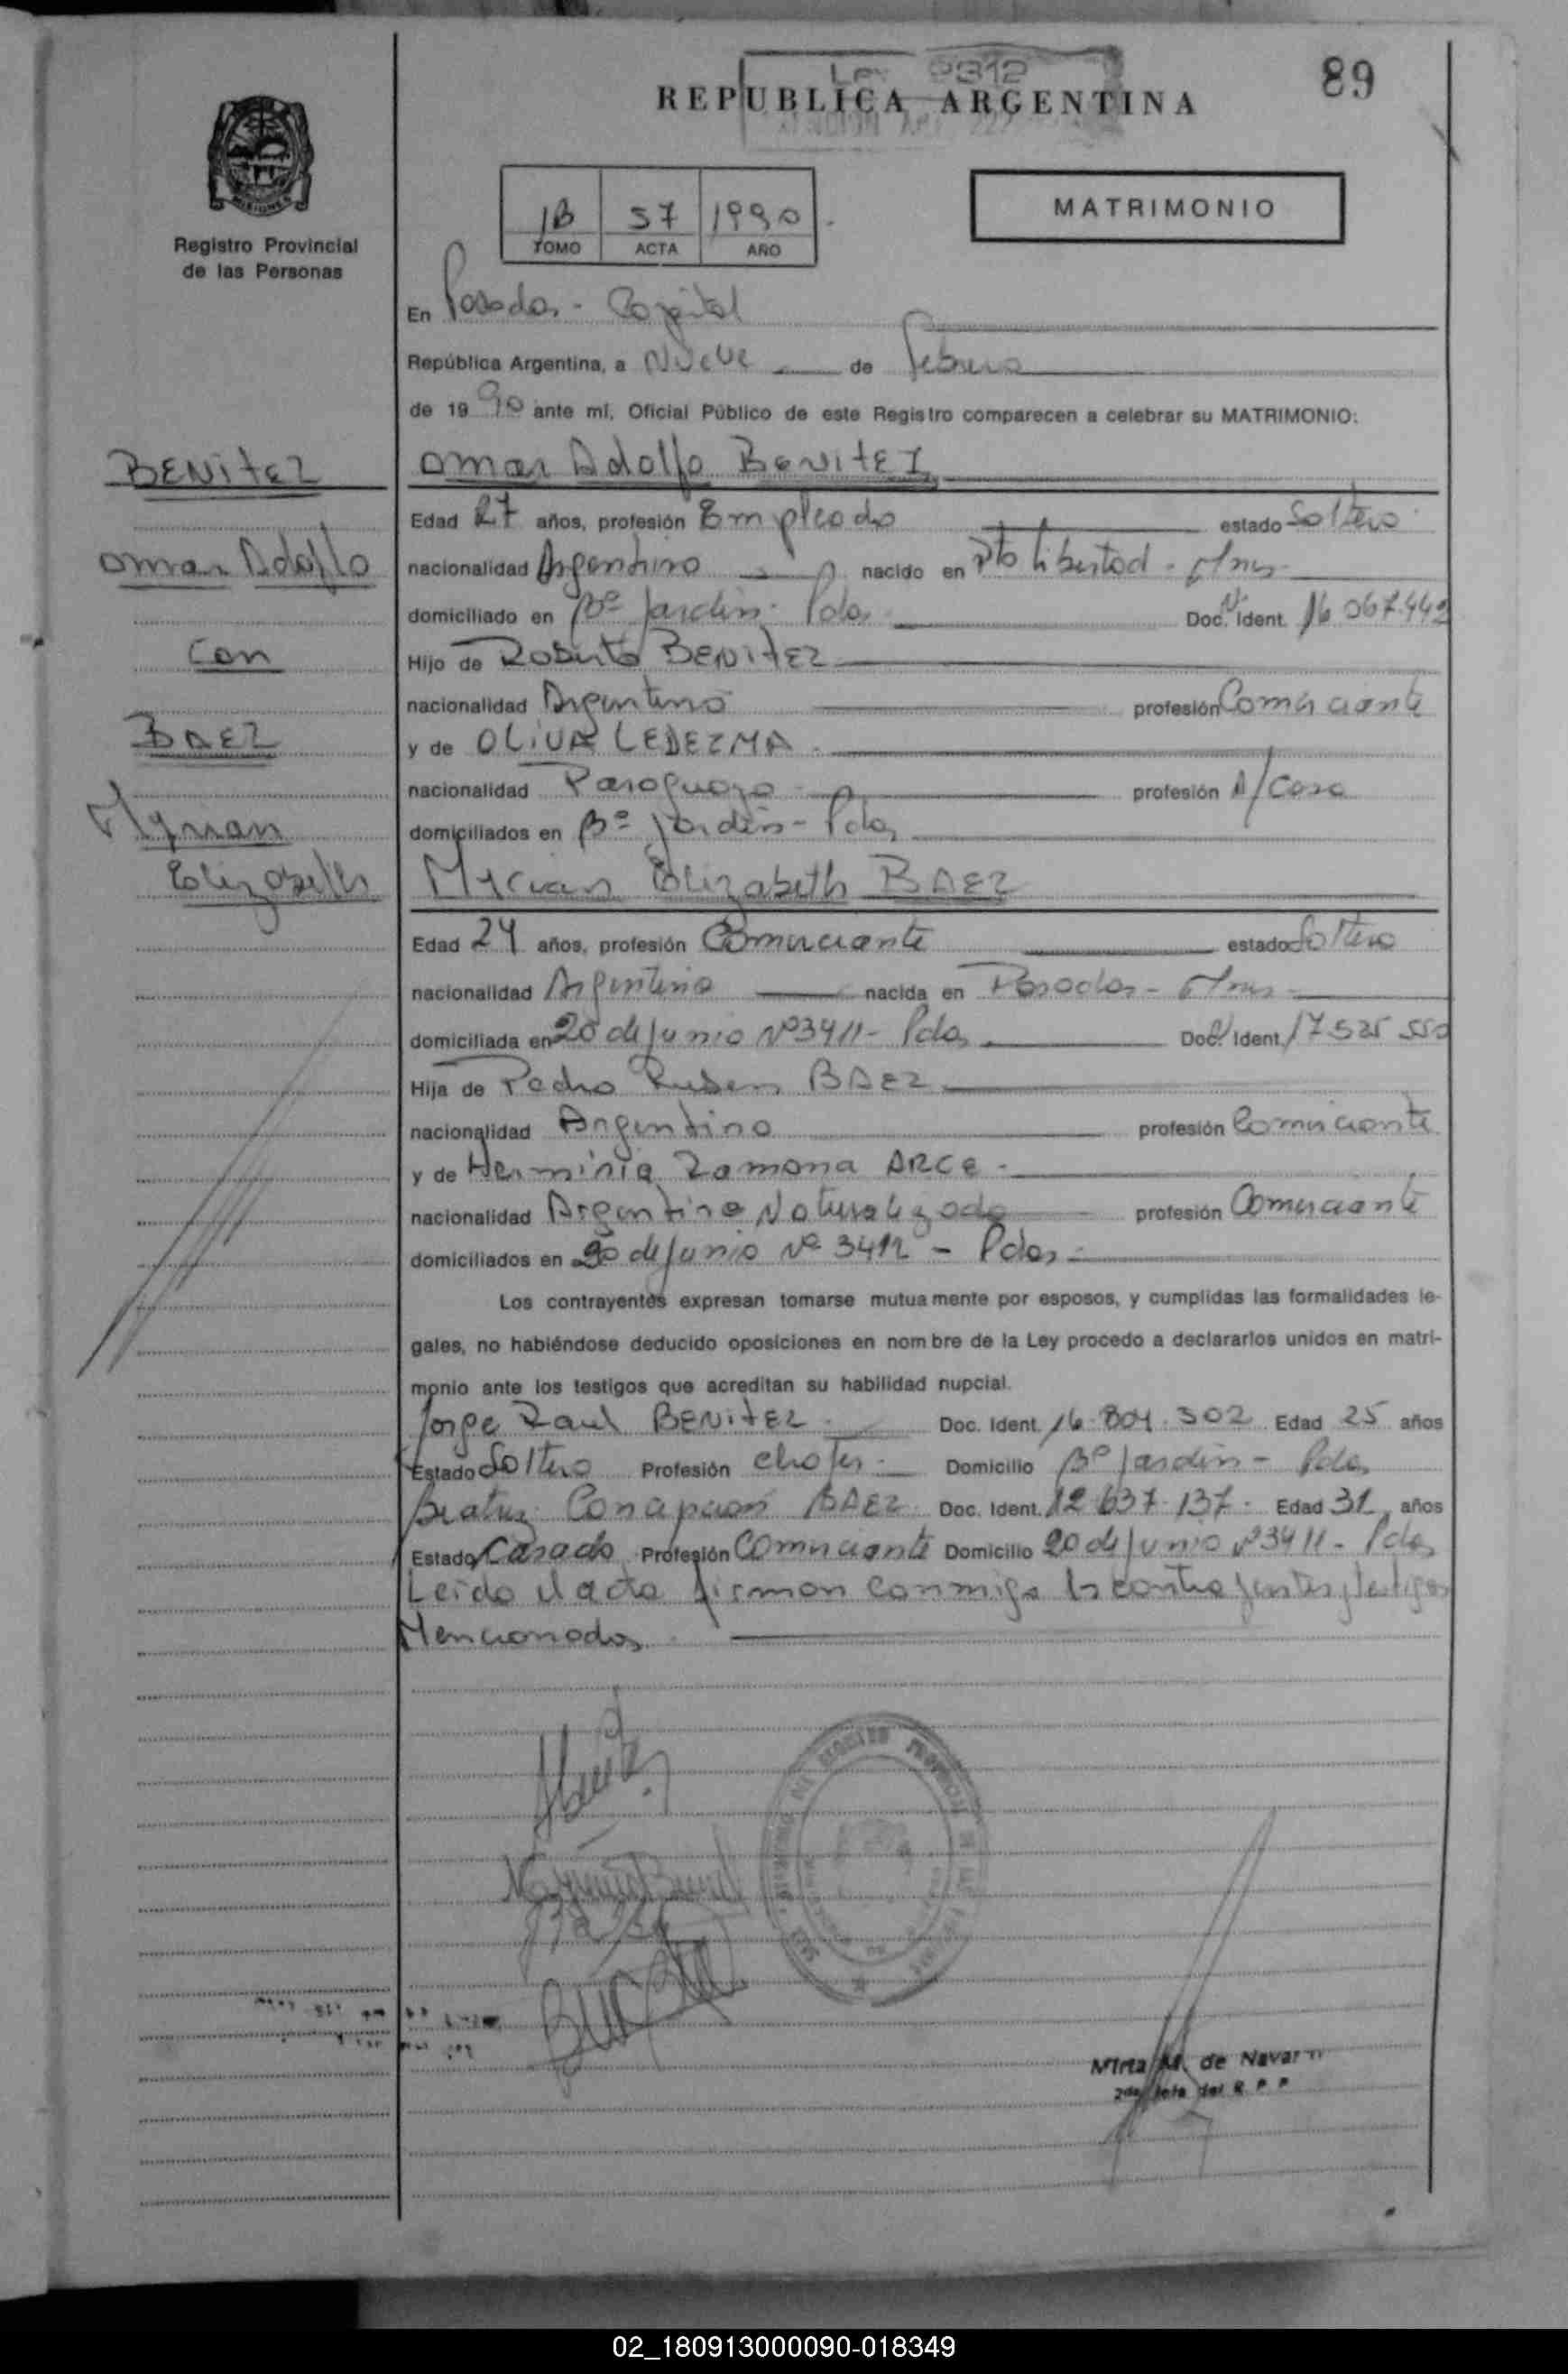 89
Ley 2312
REPUBLICA ARGENTINA
MISIONES
Registro Provincial
de las Personas
1B 57 1990
TOMO ACTA AÑO
MATRIMONIO
En Posadas - Capital
República Argentina, a Nueve de febrero
de 1990 ante mí, Oficial Público de este Registro comparecen a celebrar su MATRIMONIO:
BENITEZ
Omar Adolfo
Con
BAEZ
Myrian
Elizabeth
Omar Adolfo BENITEZ
Edad 27 años, profesión Empleado estado Soltero
nacionalidad Argentino nacido en Pto Libertad - Mnes
domiciliado en Bº Jardin - Pdas Doc. Nº Ident. 16 067.442
Hijo de Roberto BENITEZ
nacionalidad Argentino profesión Comerciante
y de OLIVA LEDEZMA
nacionalidad Paraguaya profesión A/Casa
domiciliados en Bº Jardin - Pdas
Myrian Elizabeth BAEZ
Edad 24 años, profesión Comerciante estado Soltera
nacionalidad Argentina nacida en Posadas - Mnes
domiciliada en 20 de Junio Nº 3411 - Pdas Doc. Ident. 17 525 550
Hija de Pedro Ruben BAEZ
nacionalidad Argentino profesión Comerciante
y de Herminia Ramona ARCE -
nacionalidad Argentina Naturalizada profesión Comerciante
domiciliados en 20 de Junio Nº 3411 - Pdas
Los contrayentes expresan tomarse mutuamente por esposos, y cumplidas las formalidades le-
gales, no habiéndose deducido oposiciones en nombre de la Ley procedo a declararlos unidos en matri-
monio ante los testigos que acreditan su habilidad nupcial.
Jorge Raul BENITEZ Doc. Ident. 16.804.302 Edad 25 años
Estado Soltero Profesión Chofer Domicilio Bº Jardin - Pdas
Beatriz Concepcion BAEZ Doc. Ident. 12.637.137 Edad 31 años
Estado Casada Profesión Comerciante Domicilio 20 de Junio Nº 3411 - Pdas
Leido el acta firman conmigo los contrayentes y testigos
Mencionados
Mirta M. de Navarro
2da Jefa del R. P. P.
02_180913000090-018349